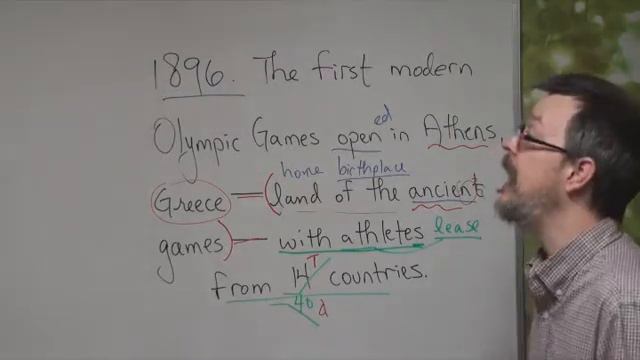 1896. The first modern
Olympic Games open ed in Athens,
home birthplace
Greece = (land of the ancient
games) — with athletes lease
from 14 T countries.
40 d